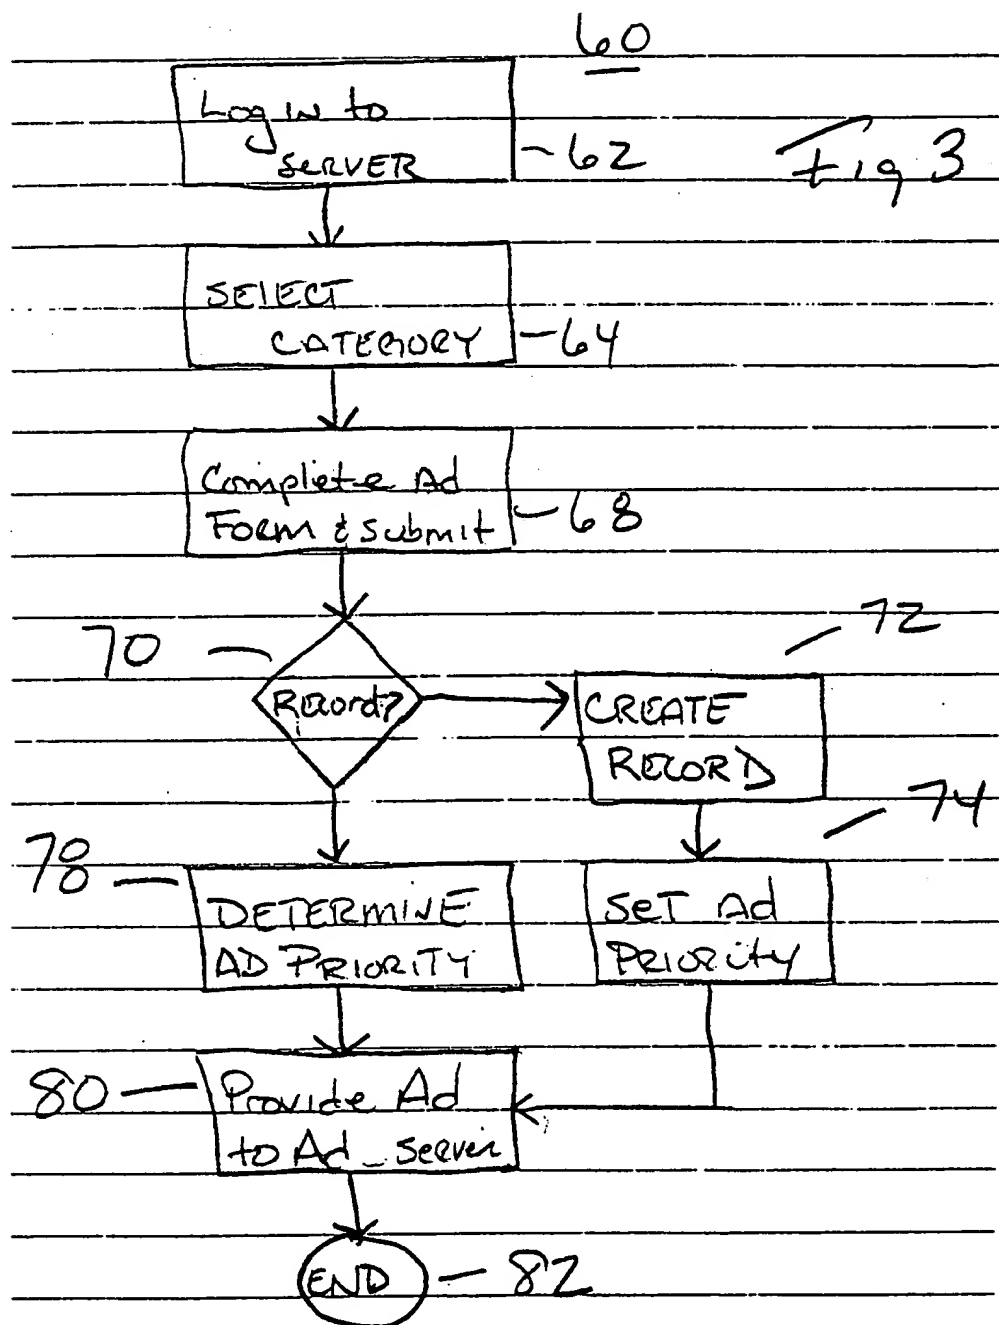 60
Log in to
SERVER
-62
Fig 3
SELECT
CATEGORY
-64
Complete Ad
Form & submit
-68
70
72
Record?
CREATE
RECORD
74
78
DETERMINE
AD PRIORITY
SET Ad
PRIORITY
80
Provide Ad
to Ad_Server
END
-82